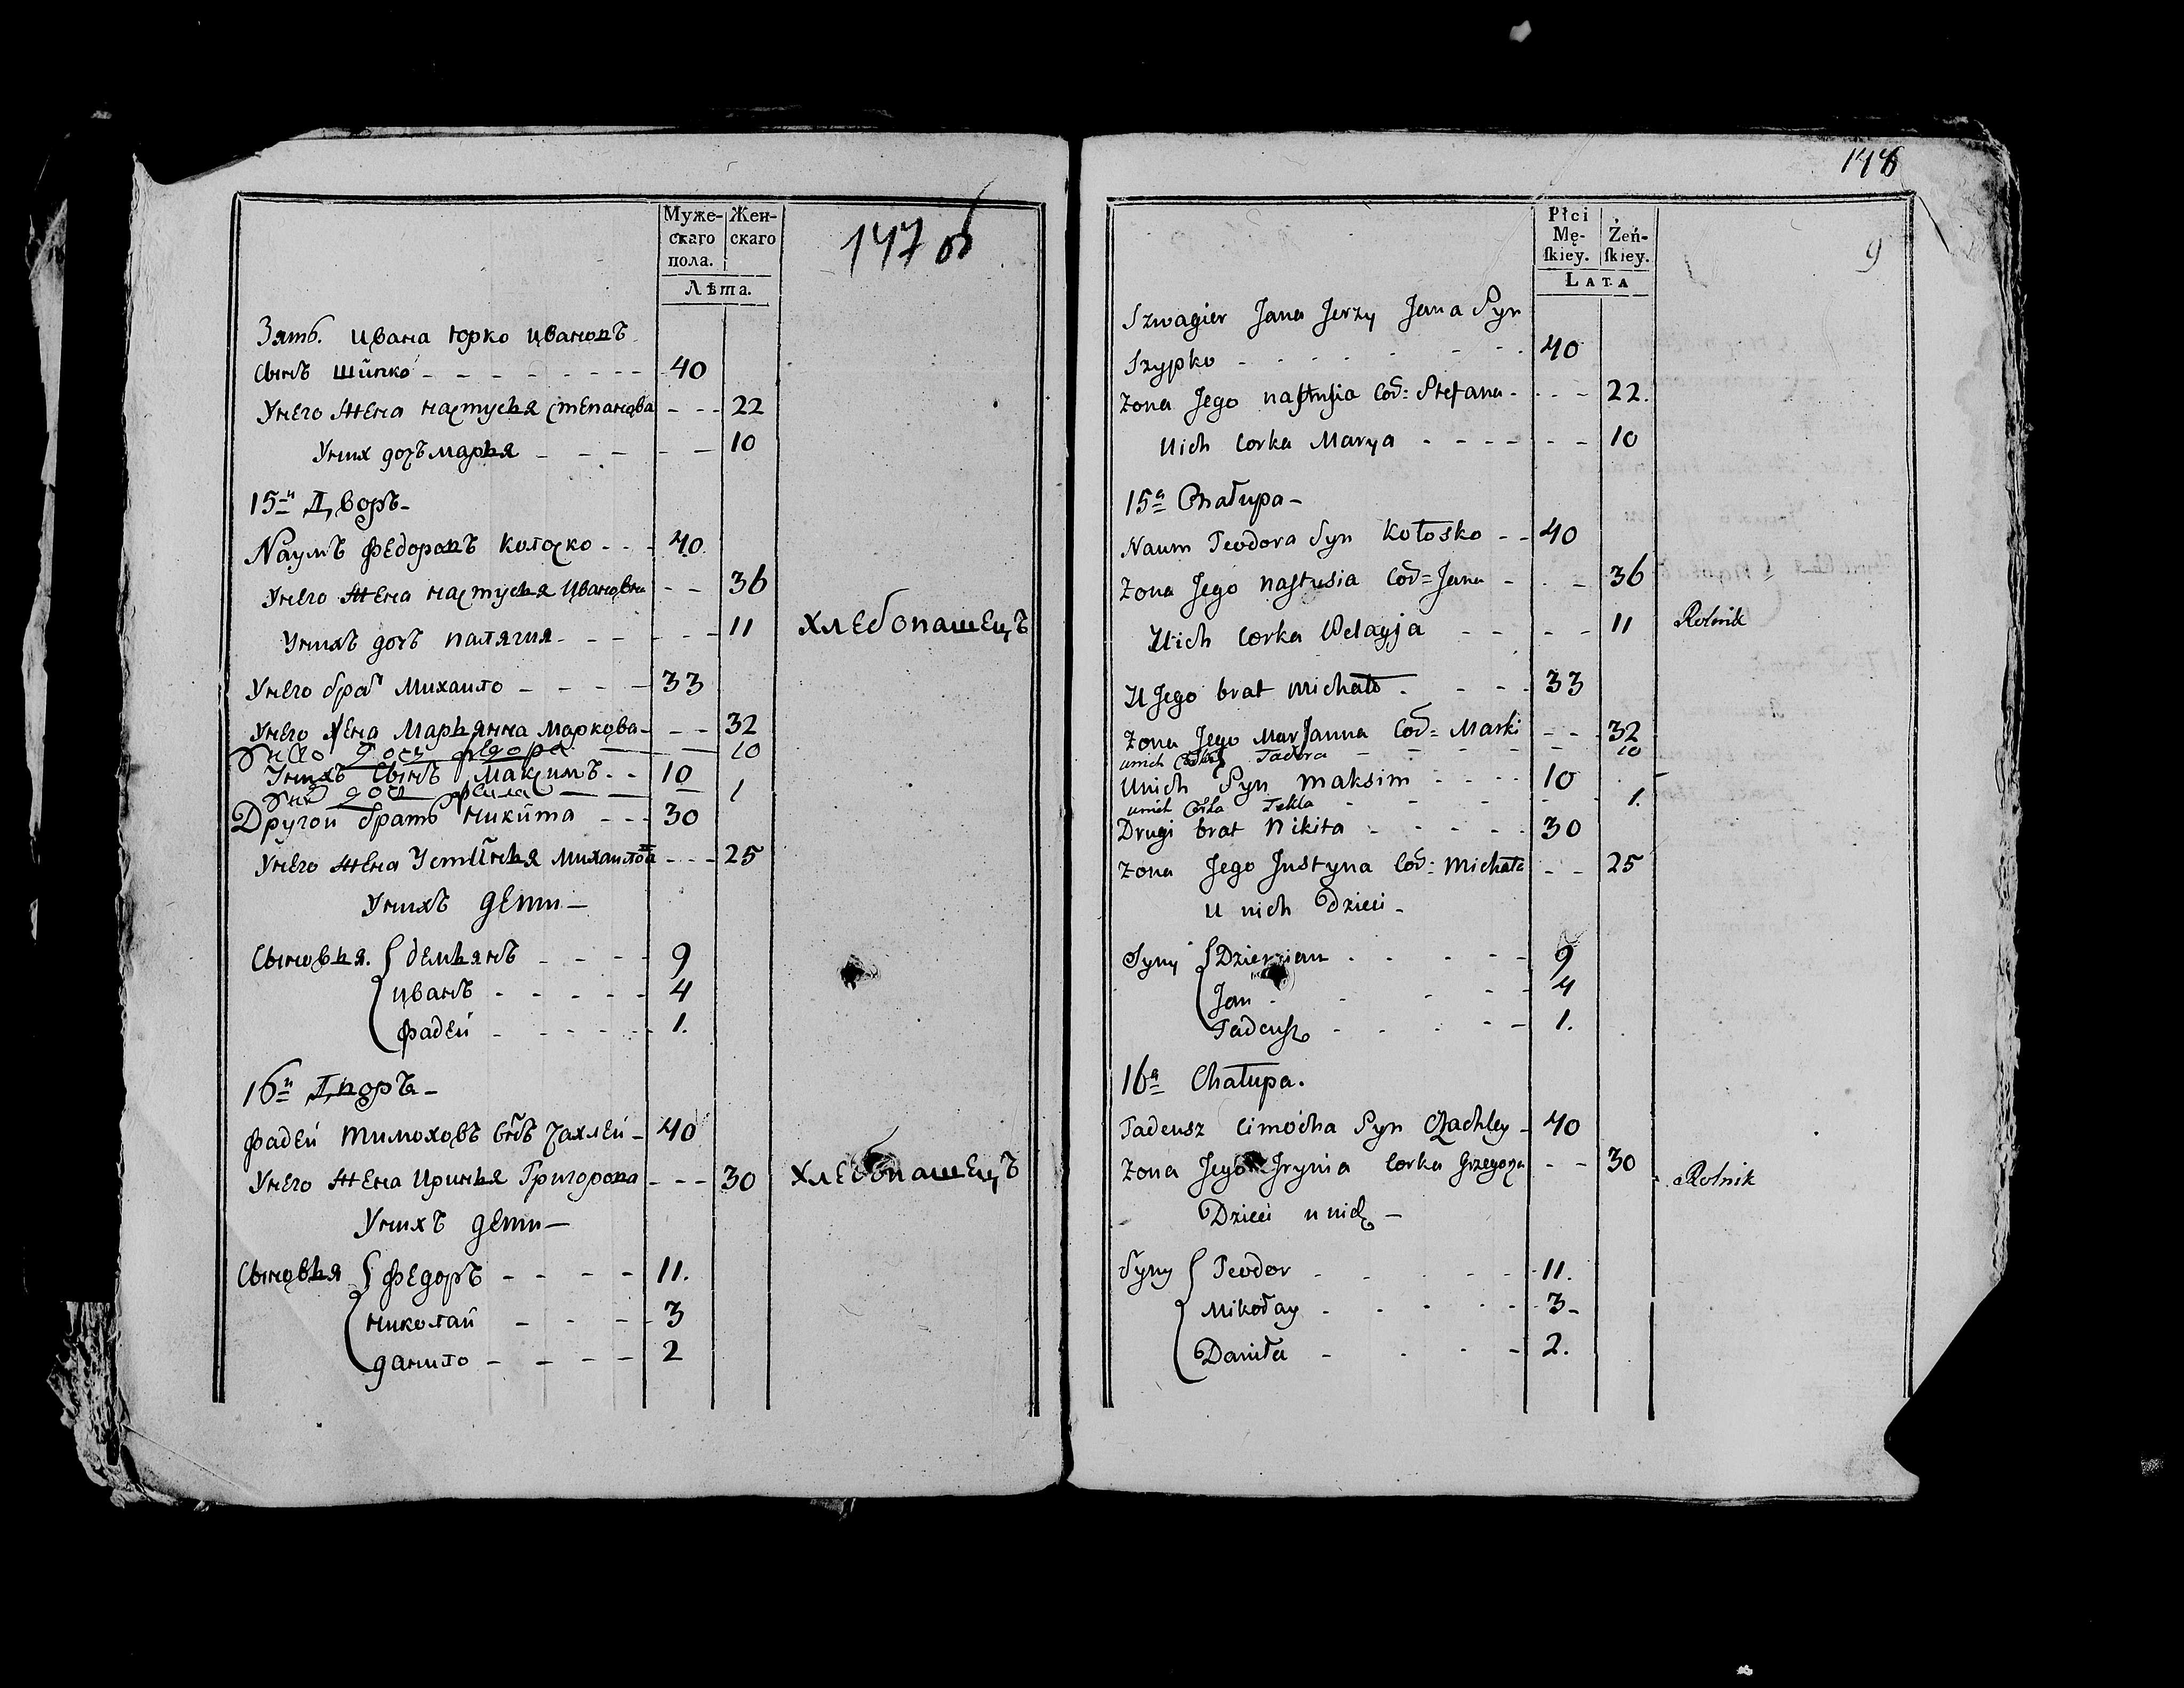 Муже- Жен-
скаго скаго
пола.
Лѣта.
147 об
Зять. Ивана Юрко Ивановъ
сынъ Шипко 40
Унего жена настусья степанова 22
Уних дочъ марья 10
15й Дворъ
Наумъ Федоровъ Колоско 40
Унего жена настусья Ивановна 36
Унихъ дочъ палягия 11 хлебопашецъ
Унего брат Михайло 33
Унего жена Марьянна Маркова 32
дочь федора 10
Унихъ сынъ Максимъ 10
1
Другой братъ Никита 30
Унего жена Устинья Михайлова 25
Унихъ дети
Сыновья. демьянъ 9
иванъ 4
фадей 1.
16й Дворъ
Фадей Тимоховъ снъ Чахлей 40
Унего жена Иринья Григорова 30 хлебопашецъ
Унихъ дети
Сыновья Федоръ 11.
николай 3
данило 2
148
9
Płci
Mę- Żeń-
ſkiey. ſkiey.
LATA
Szwagier Jana Jerzy Jana Syn
Szypko 40
Zona Jego nastusia Cod: Stefana 22.
Uich Corka Marya 10
15a Chałupa
Naum Teodora Syn Kołosko 40
Zona Jego nastusia Cod= Jana 36
Uich Corka Pelagja 11 Rolnik
U Jego brat Michało 33
Zona Jego Marjanna Cod= Marki 32
unich Corka Tadora 10
Unich Syn maksim 10
unich Corka Tekla 1.
Drugi brat Nikita 30
Zona Jego Justyna Cod: Michała 25
U nich Dzieci
Syny Dziemian 9
Jan 4
Tadeusz 1.
16a Chałupa.
Tadeusz Cimocha Syn Czachley 40
Zona Jego Jrynia Corka Grzegorza 30 Rolnik
Dzieci u nich
Syny Teodor 11.
Mikołay 3
Daniła 2.